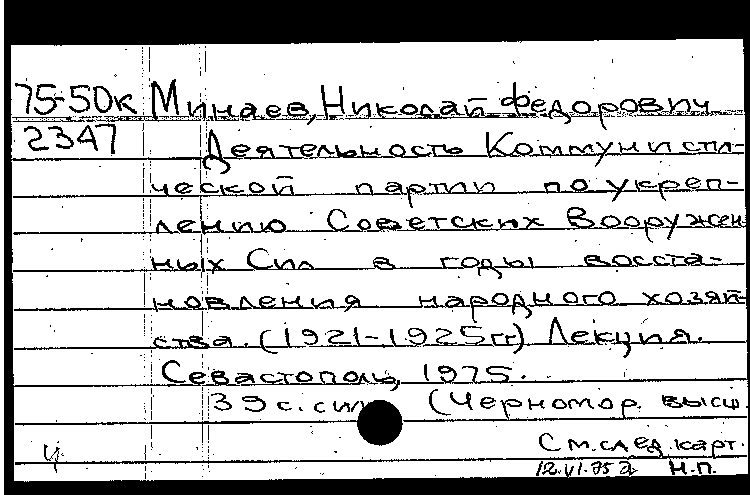 75-50к Минаев, Николай Федорович
2347 Деятельность Коммунисти-
ческой партии по укреп-
лению Советских Вооружен
ных Сил в годы восста-
новления народного хозяй-
ства. (1921-1925гг) Лекция.
Севастополь, 1975.
39 с. (Черномор. высш.
См. след. карт.
Ч 12.VI.75 Н.П.